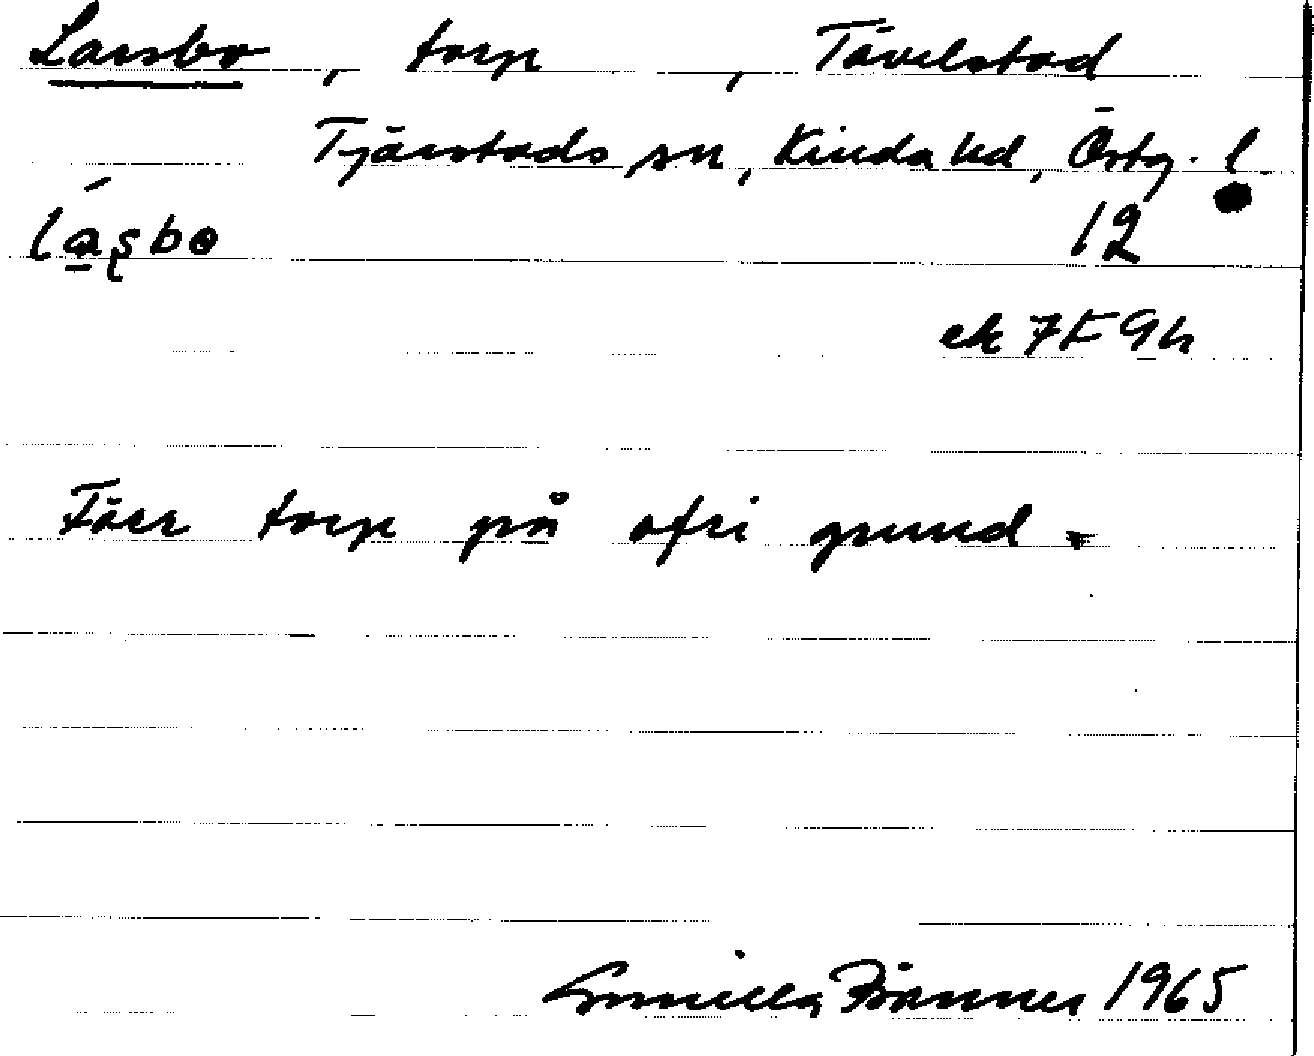 Larsbo, torp, Tävelstad
Tjärstads sn, Kinda hd, Östg. l.
lá̱s̨bo 12
ek 7F 9h
Förr torp på ofri grund.
Gunilla Brännes 1965